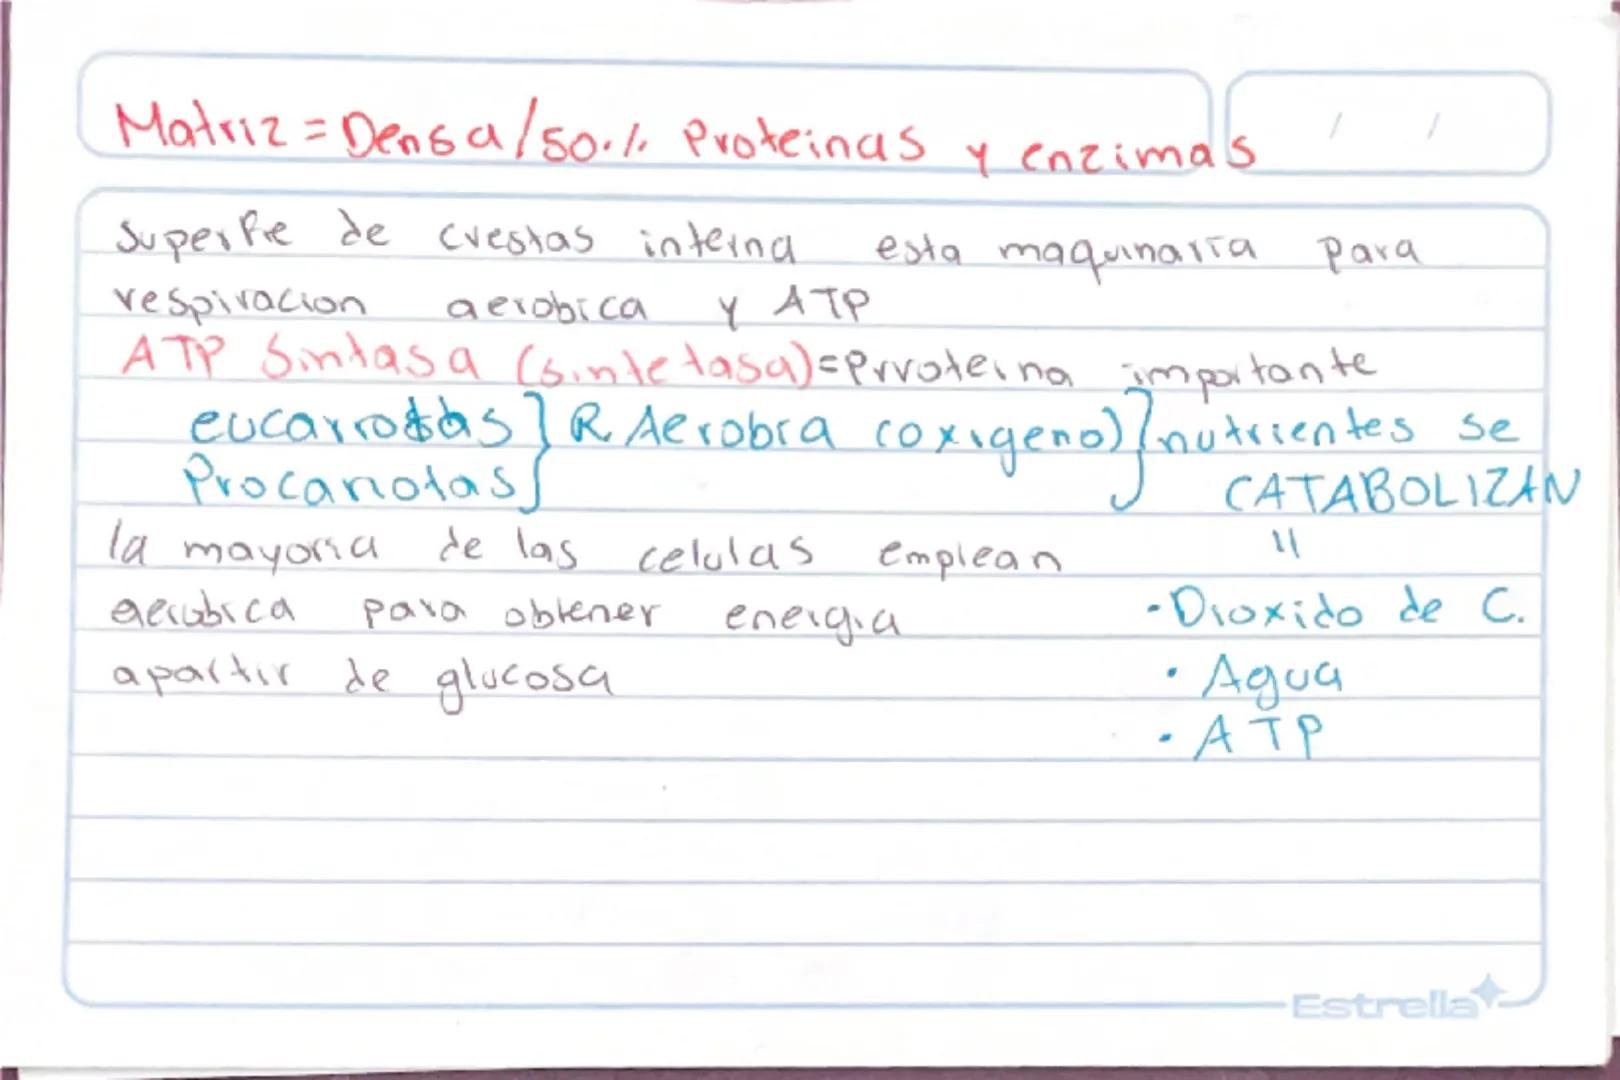 Matriz = Densa/50% Proteinas y enzimas
/ /
superfie de crestas interna esta maquinaria para
respiracion aerobica y ATP
ATP Sintasa (sintetasa)=Prvoteina importante
eucarrotas } R Aerobia (oxigeno) } nutrientes se
Procariotas CATABOLIZAN
la mayoria de las celulas emplean "
aerobica para obtener energia · Dioxido de C.
apartir de glucosa · Agua
· ATP
Estrella